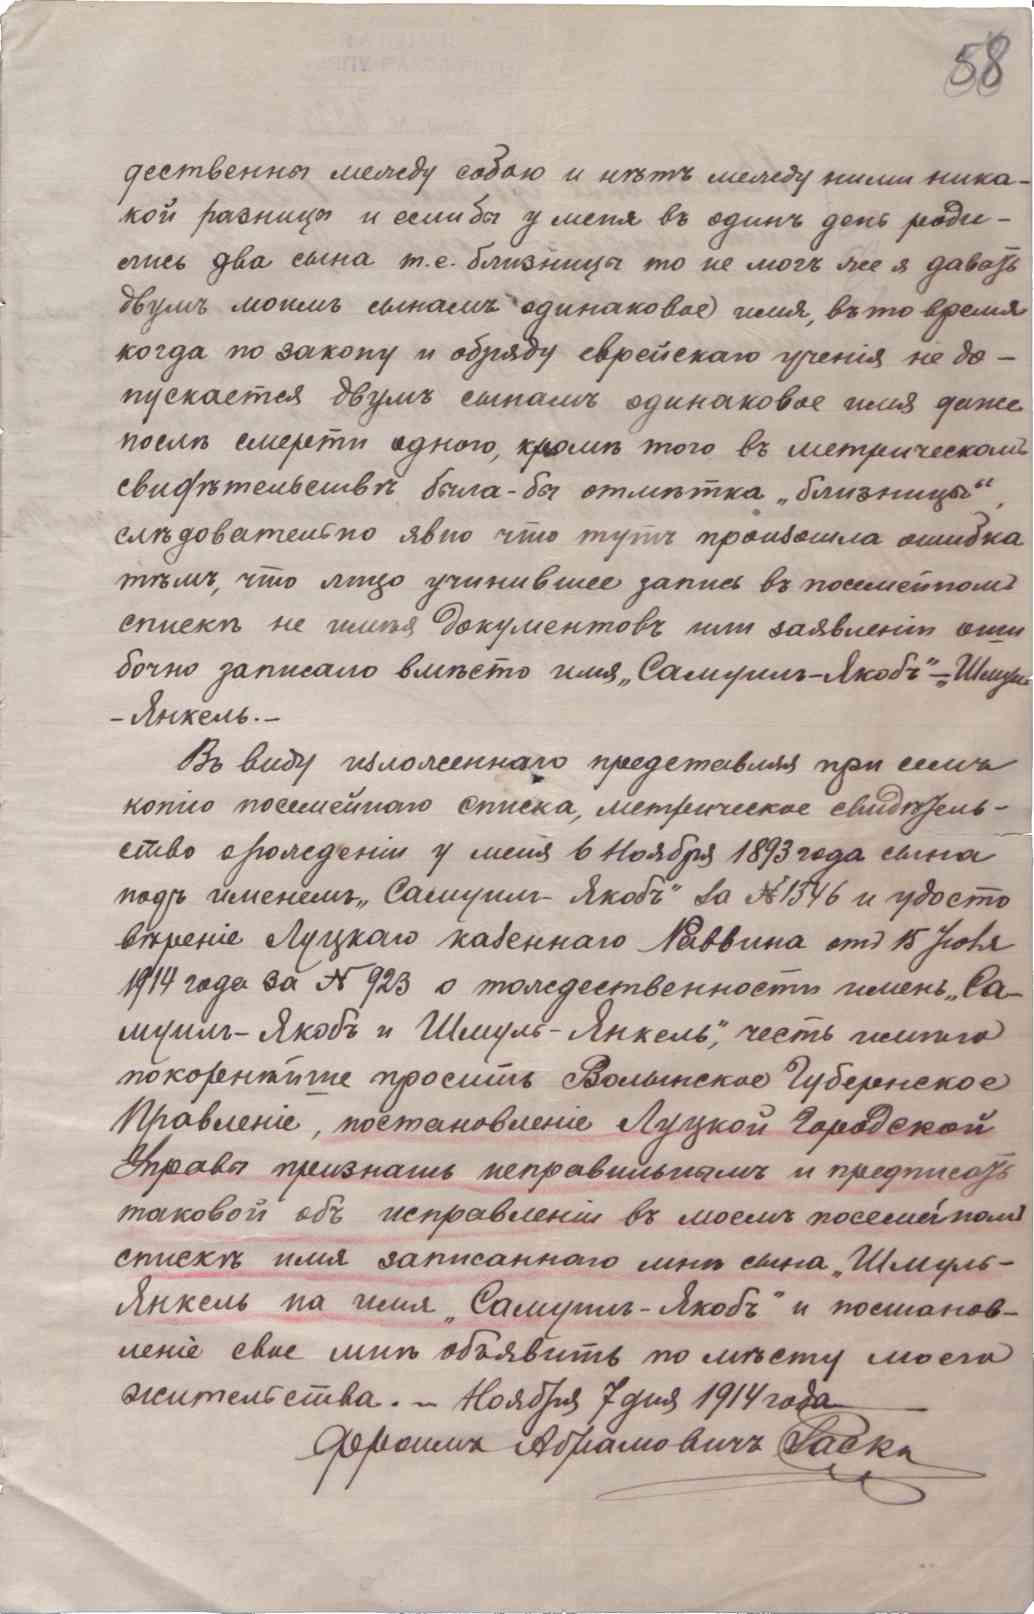 58
дественны между собою и нѣтъ между ними ника-
кой разницы и если бы у меня въ одинъ день роди-
лись два сына т.е. близницы то не могъ же я давать
двумъ моимъ сынамъ одинаковое имя, въ то время
когда по закону и обряду еврейскаго ученія не до-
пускается двумъ сынамъ одинаковое имя даже
послѣ смерти одного, кромѣ того въ метрическомъ
свидѣтельствѣ была-бы отмѣтка „близницы“,
слѣдовательно явно что тутъ произошла ошибка
тѣмъ, что лицо учинившее запись въ посемейномъ
спискѣ не имѣя документовъ или заявленіи оши
бочно записало вмѣсто имя „Самуилъ-Якобъ“ – „Шмуль
-Янкель.-
Въ виду изложеннаго представляя при семъ
копію посемейнаго списка, метрическое свидѣтель-
ство о рожденіи у меня 6 Ноября 1893 года сына
подъ именемъ „Самуилъ-Якобъ“ за № 1546 и удосто
вѣреніе Луцкаго казеннаго Раввина отъ 15 Іюля
1914 года за № 923 о тождественности именъ „Са-
муилъ-Якобъ и Шмуль-Янкель“, честь имѣю
покорнѣйше просить Волынское Губернское
Правленіе, постановленіе Луцкой Городской
Управы признать неправильнымъ и предписать
таковой объ исправленіи въ моемъ посемейномъ
спискѣ имя записаннаго мнѣ сына „Шмуль-
Янкель на имя „Самуилъ-Якобъ“ и постанов-
леніе свое мнѣ объявить по мѣсту моего
жительства. - Ноября 7 дня 1914 года
Фроимъ Абрамовичъ